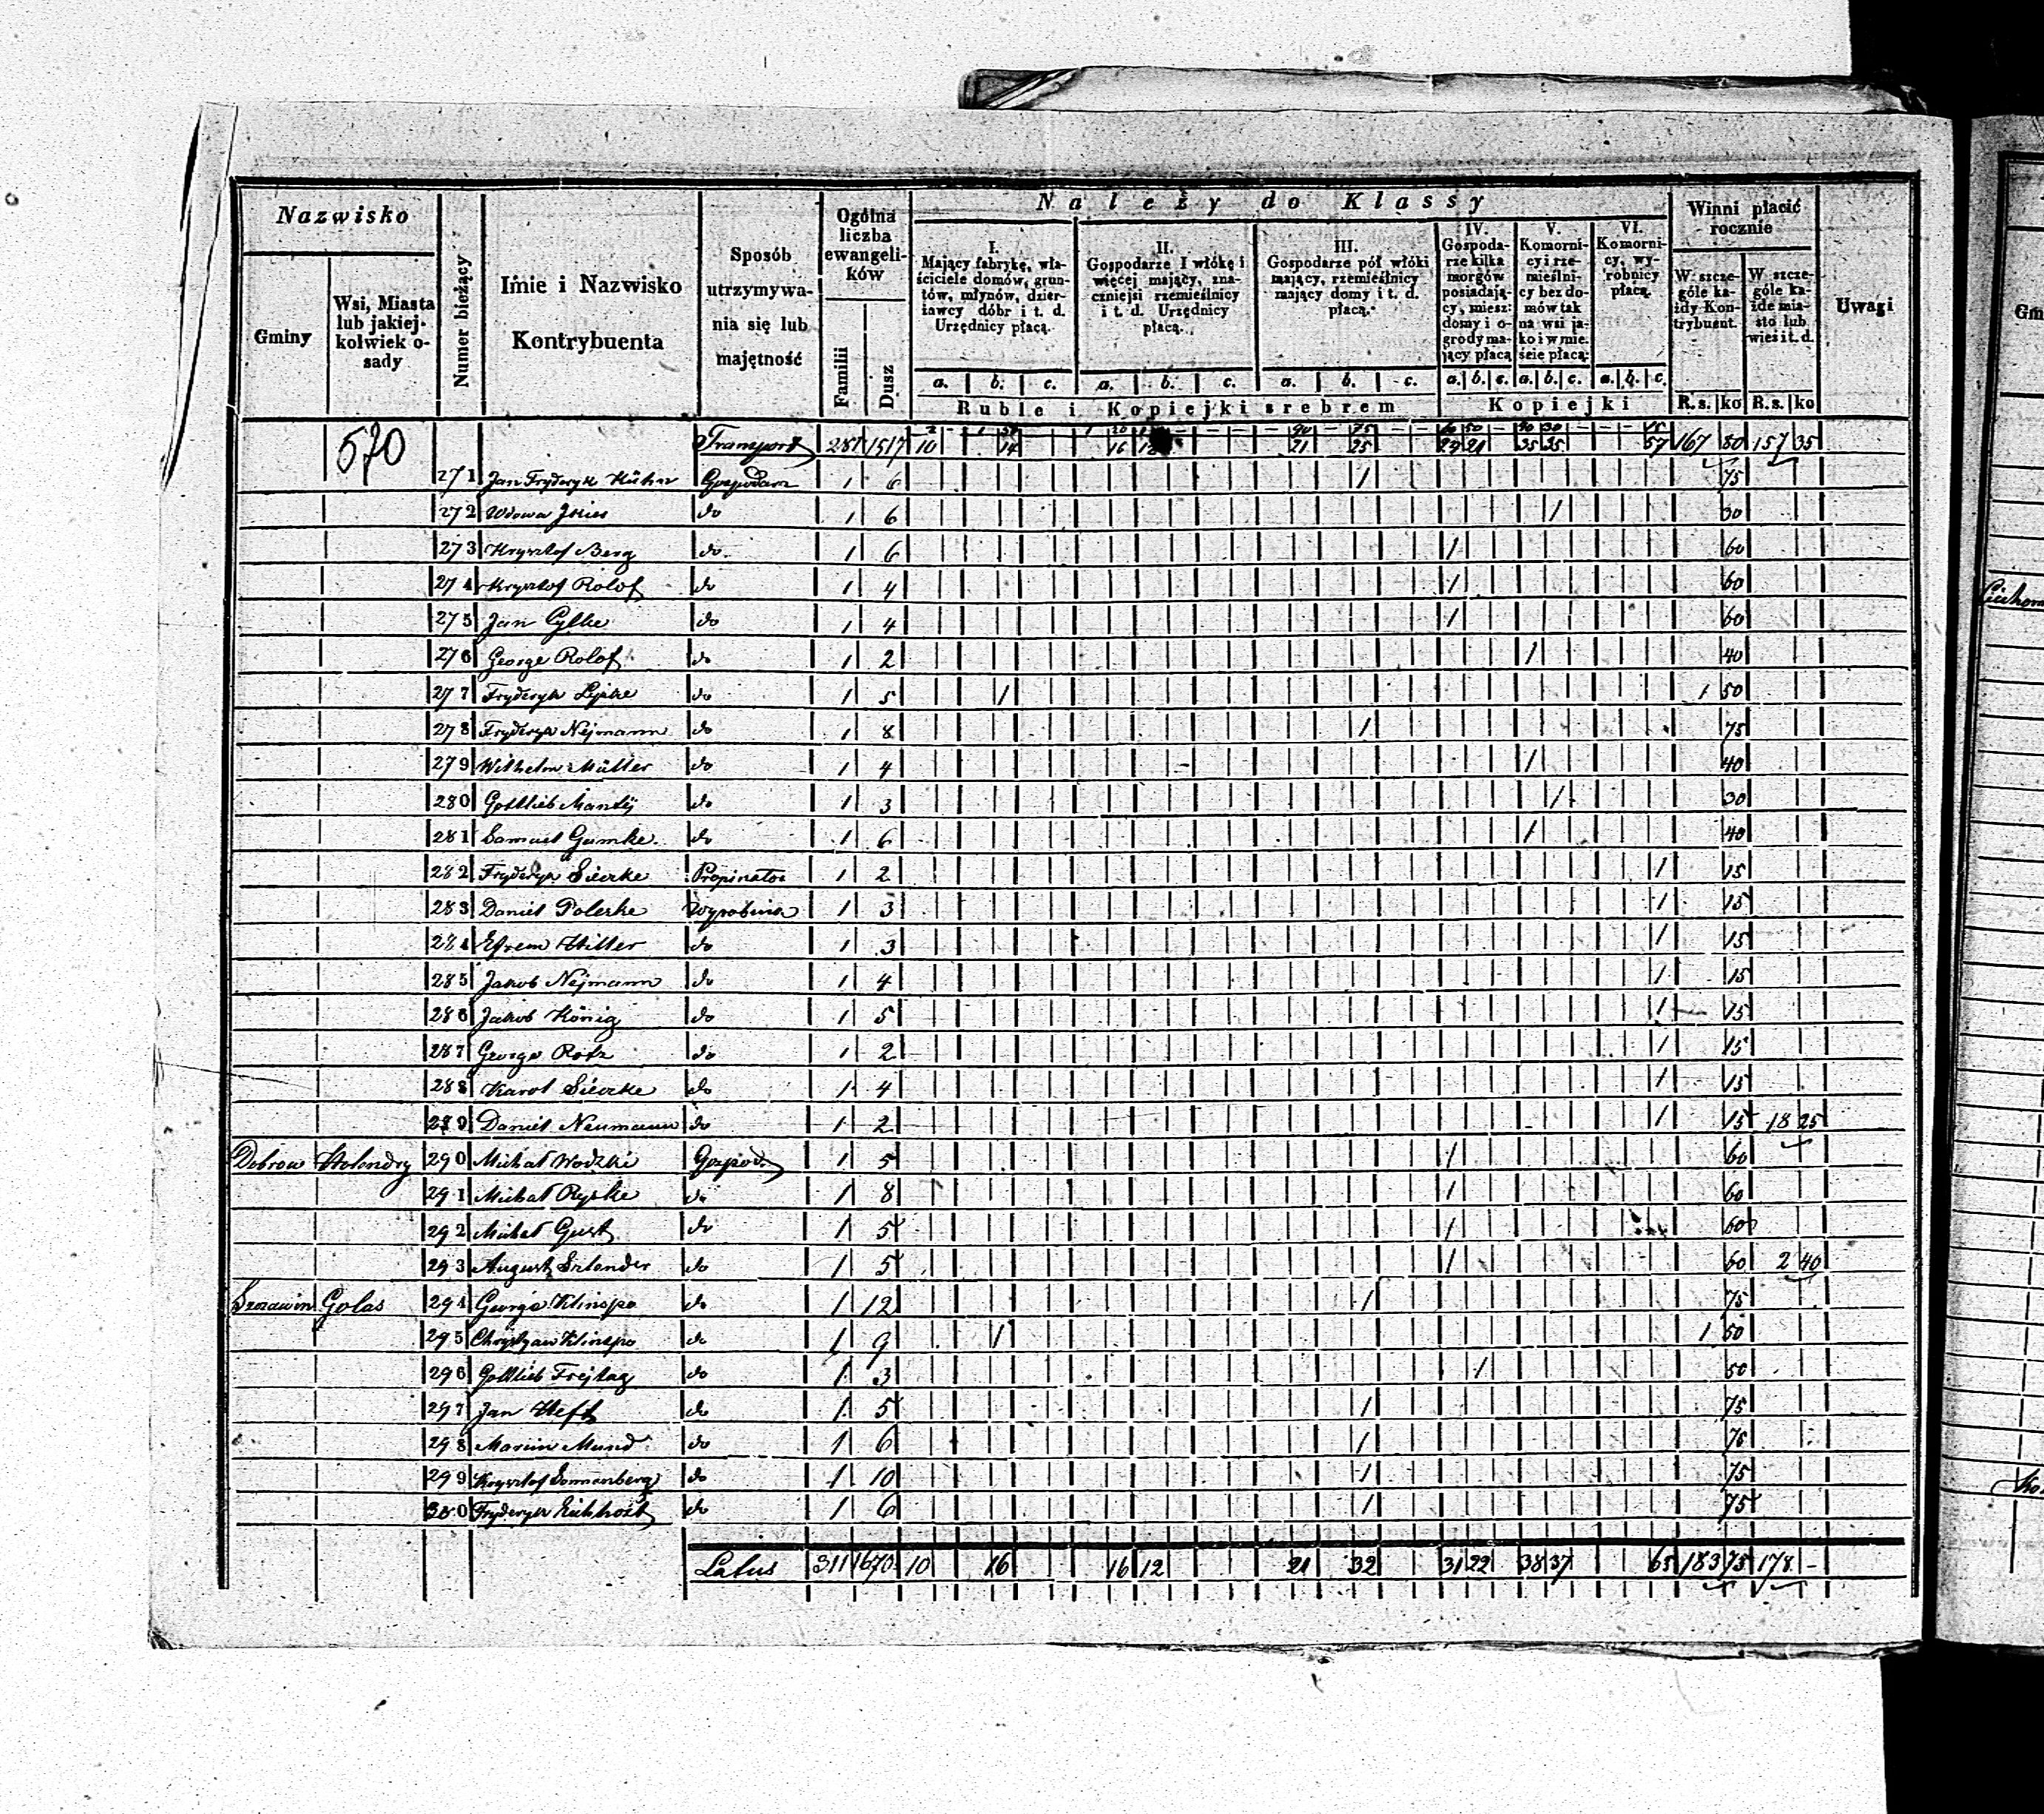 Nazwisko
Gminy
Wsi, Miasta lub jakiejkolwiek osady
Numer bieżący
Imie i Nazwisko Kontrybuenta
Sposób utrzymywania się lub majętność
Ogólna liczba ewangelików
Familii
Dusz
Należy do Klassy
I. Mający fabrykę, właściciele domów, gruntów, młynów, dzierżawcy dóbr i t. d. Urzędnicy płacą.
II. Gospodarze I włókę i więcej mający, znaczniejsi rzemieślnicy i t. d. Urzędnicy płacą.
III. Gospodarze pół włóki mający, rzemieślnicy mający domy i t. d. płacą.
IV. Gospodarze kilka morgów posiadający, miesz: domy i ogrody mający płacą
V. Komornicy i rzemieślnicy bez domów tak na wsi jako i w mieście płacą:
VI. Komornicy, wyrobnicy płacą.
a. b. c. a. b. c. a. b. c. a. b. c. a. b. c. a. b. c.
Ruble i Kopiejki srebrem
Kopiejki
Winni płacić rocznie
W szczególe każdy Kontrybuent.
W szczególe każde miasto lub wieś i t. d.
R.s. ko R.s. ko
Uwagi
570
Transport 281 1517 10 14 16 12 21 25 29 21 35 35 57 167 80 157 35
271 Jan Fryderyk Kühn Gospodarz 1 6 1 75
272 Wdowa do 1 6 1 30
273 Krysztof Berg do 1 6 1 60
274 Krysztof Rolof do 1 4 1 60
275 Jan Cylke do 1 4 1 60
276 George Rolof do 1 2 1 40
277 Fryderyk Lypke do 1 5 1 1 50
278 Fryderyk Nejmann do 1 8 1 75
279 Wilhelm Müller do 1 4 1 40
280 Gottlieb Mantÿ do 1 3 1 30
281 Samuel Gumke do 1 6 1 40
282 Fryderyk Siewke Propinator 1 2 1 15
283 Daniel Poleske Wyrobnik 1 3 1 15
284 Efrem Hiller do 1 3 1 15
285 Jakob Nejmann do 1 4 1 15
286 Jakob König do 1 5 1 15
287 George Rotz do 1 2 1 15
288 Karol Siewke do 1 4 1 15
289 Daniel Neumann do 1 2 1 15 18 25
Dobrow Holendry 290 Michał Wodzki Gospod. 1 5 1 60
291 Michał Ryske do 1 8 1 60
292 Michał Gust do 1 5 1 60
293 August Szlender do 1 5 1 60 2 40
Szczawin Golas 294 George Klinspo do 1 12 1 75
295 Chrystyan Klinspo do 1 9 1 1 50
296 Gottlieb Frejtag do 1 3 1 50
297 Jan Heft do 1 5 1 75
298 Marcin Mund do 1 6 1 75
299 Krysztof Sonnenberg do 1 10 1 75
300 Fryderyk Eichhost do 1 6 1 75
Latus 311 1670 10 16 16 12 21 32 31 22 38 37 65 183 75 178 -